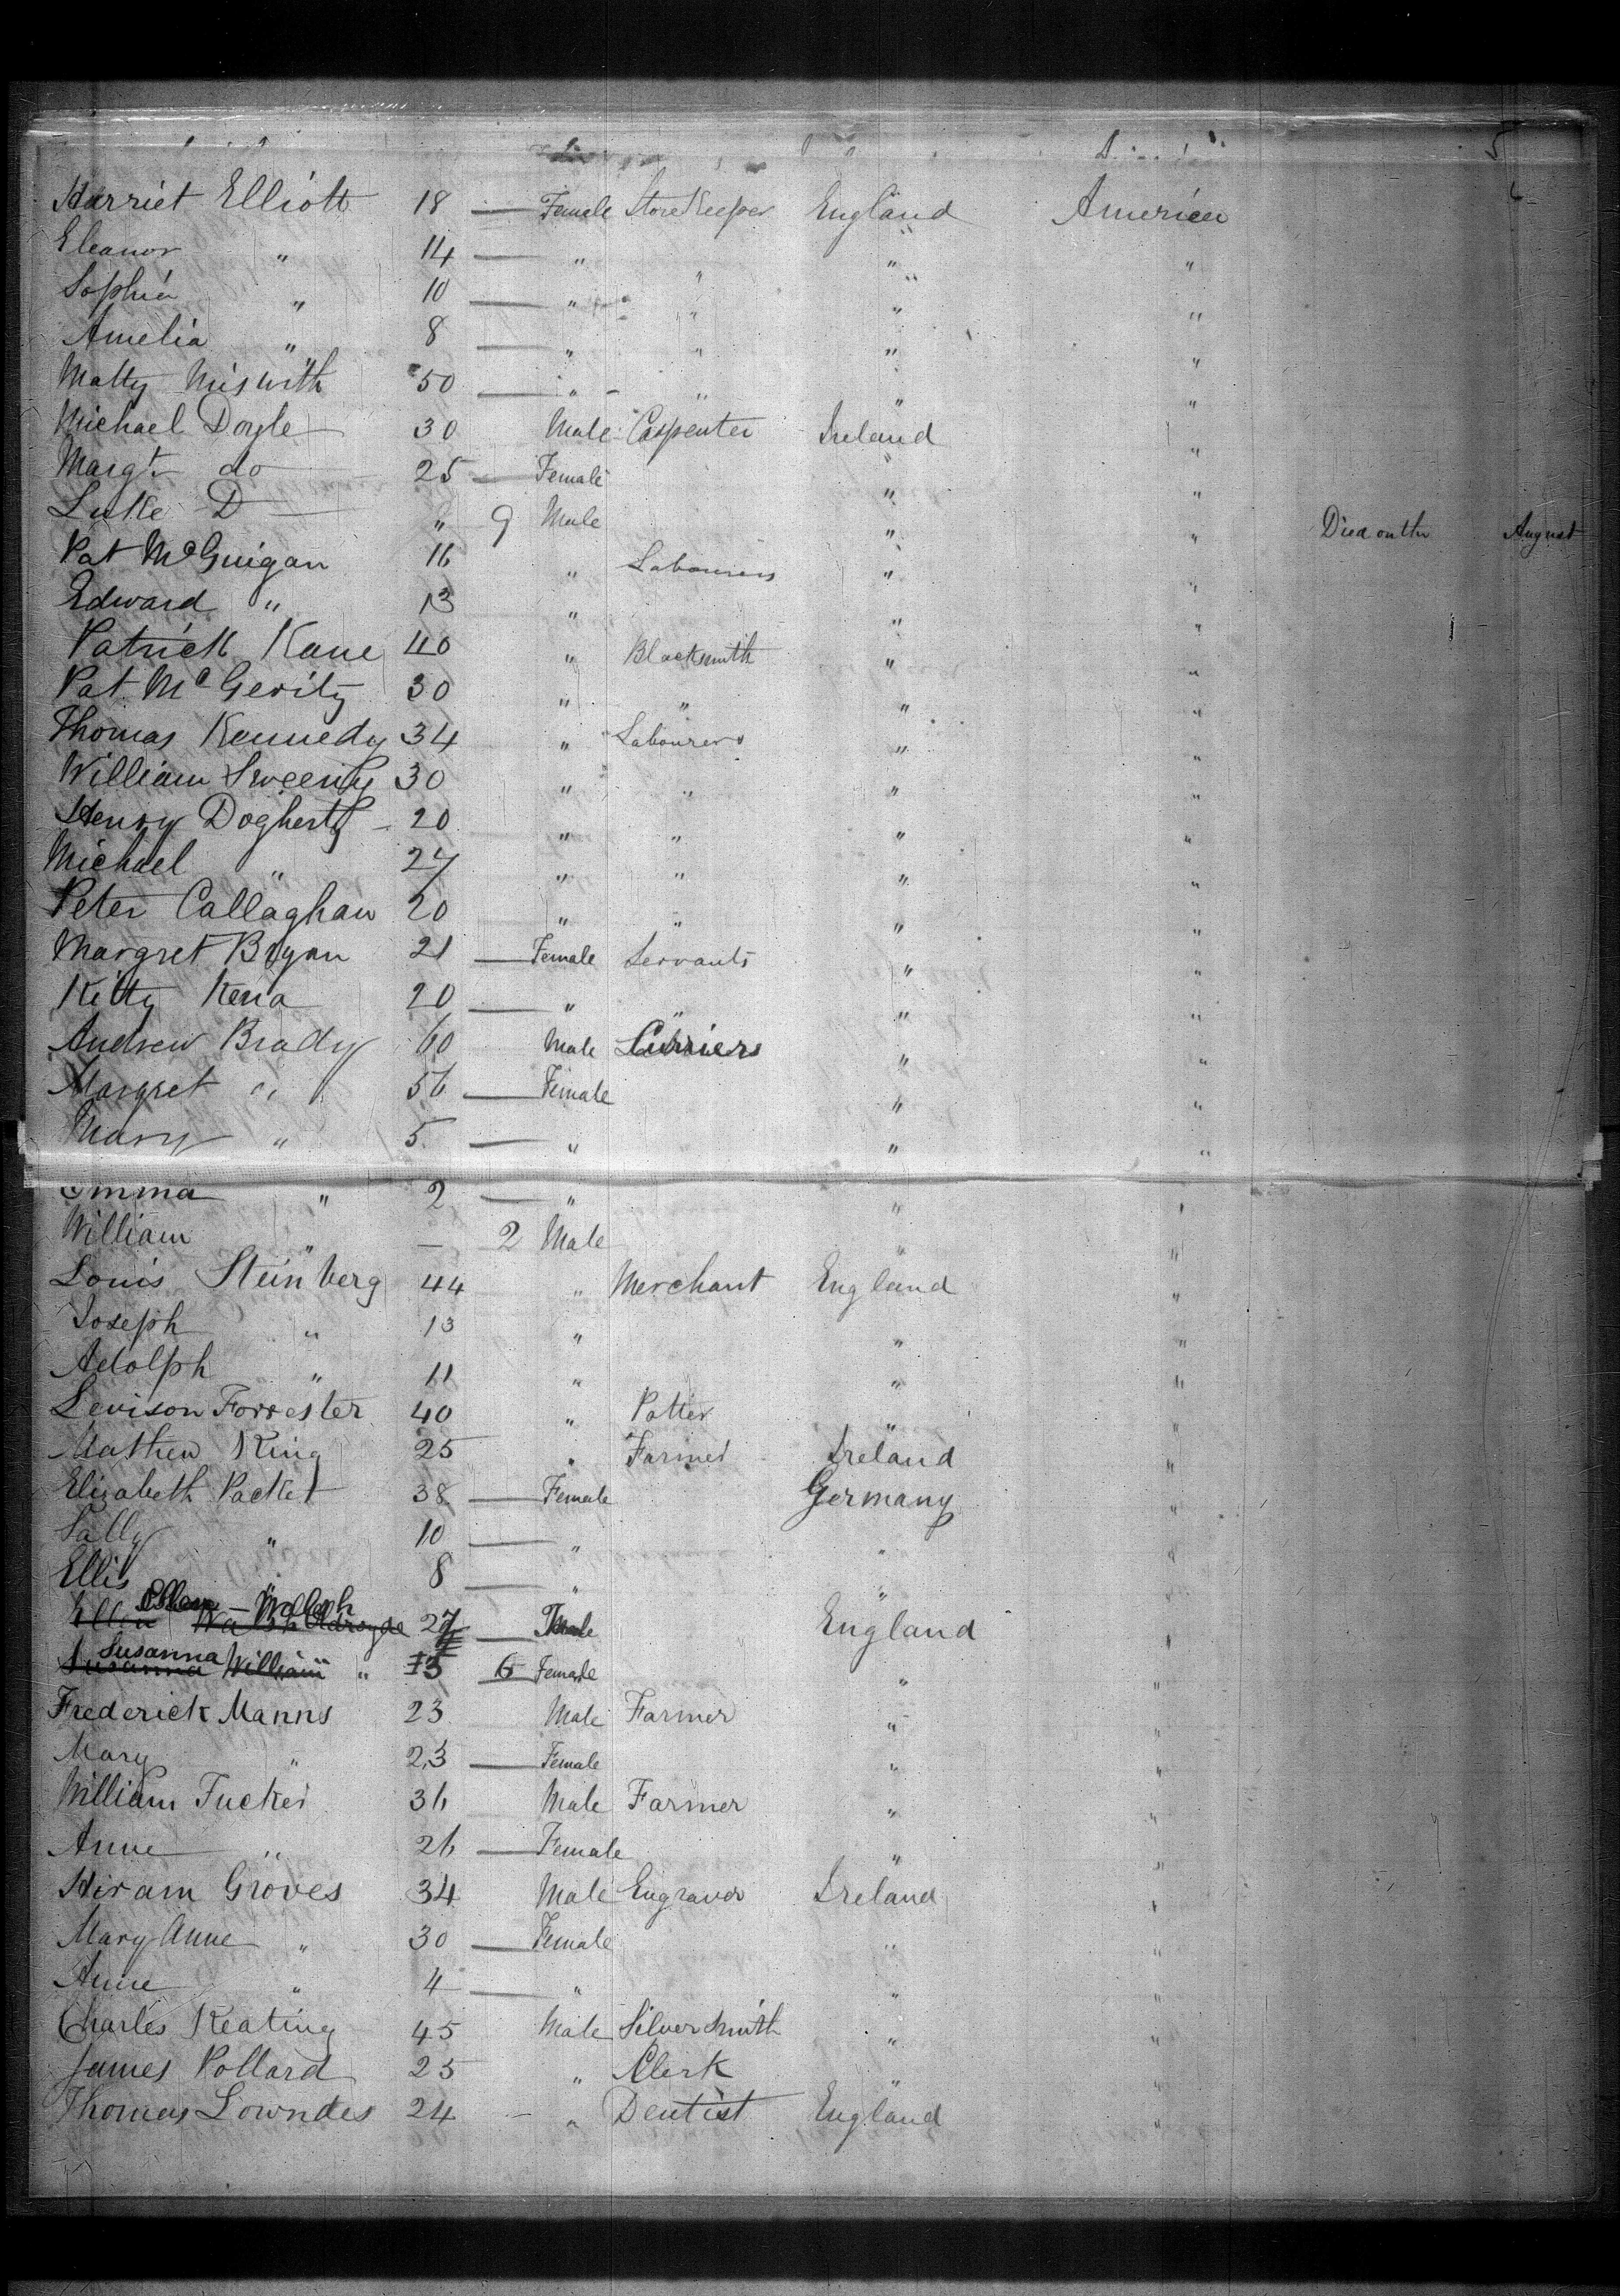 Harriet Elliott 18 — Female Storekeeper England America
Eleanor " 14 — " " " "
Sophia " 10 — " " " "
Amelia " 8 — " " " "
Matty 50 — " " " "
Michael Doyle 30 Male Carpenter Ireland "
Margt do 25 — Female " "
Luke D — " 9 Male " " Died on the August
Pat McGuigan 16 " Labourers " "
Edward " 13 " " "
Patrick Kane 40 " Blacksmith " "
Pat McGerity 30 " " " "
Thomas Kennedy 34 " Labourers " "
William Sweeny 30 " " " "
Henry Dogherty 20 " " " "
Michael " 27 " " " "
Peter Callaghan 20 " " " "
Margret Bryan 21 — Female Servants " "
Kitty Kena 20 — " " " "
Andrew Brady 60 Male Curriers " "
Margret " 56 — Female " "
Mary " 5 — " " "
Emma " 2 — " " "
William " — 2 Male " "
Louis Steinberg 44 " Merchant England "
Joseph " 13 " " "
Adolph " 11 " " "
Levison Forrester 40 " Potter " "
Mathew King 25 " Farmer Ireland "
Elizabeth Packet 38 — Female Germany "
Sally " 10 — " " "
Ellis " 8 — " " "
Ellen 27 — England "
Susanna William " 6 Female " "
Frederick Manns 23 Male Farmer " "
Mary " 23 — Female " "
William Tucker 36 Male Farmer " "
Anne " 26 — Female " "
Hiram Groves 34 Male Engraver Ireland "
Mary Anne " 30 — Female " "
Anne " 4 — " " "
Charles Keating 45 Male Silversmith " "
James Pollard 25 " Clerk " "
Thomas Lowndes 24 — " Dentist England "